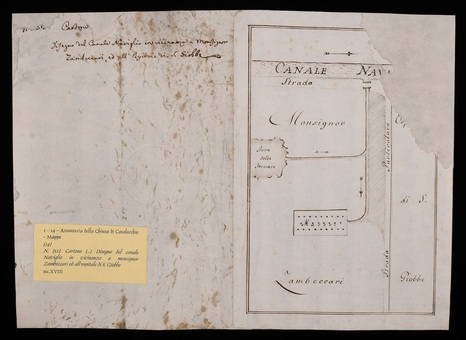 Cartone
Disegno del Canale Naviglio in vicinanza a Monsignor
Zambeccari, ed all' di S. Giobbe
1 - 14 - Armeria della Chiesa di Casalecchio
- Mappe
[14]
N. [11]. Cartone [...] Disegno del canale
Naviglio in vicinanza a monsignor
Zambeccari ed all'ospitale di S. Giobbe
sec.XVIII
CANALE NAV
Strada
Monsignor
Buca
della
Fornace
Zambeccari
Strada Particolare
di S.
Giobbe